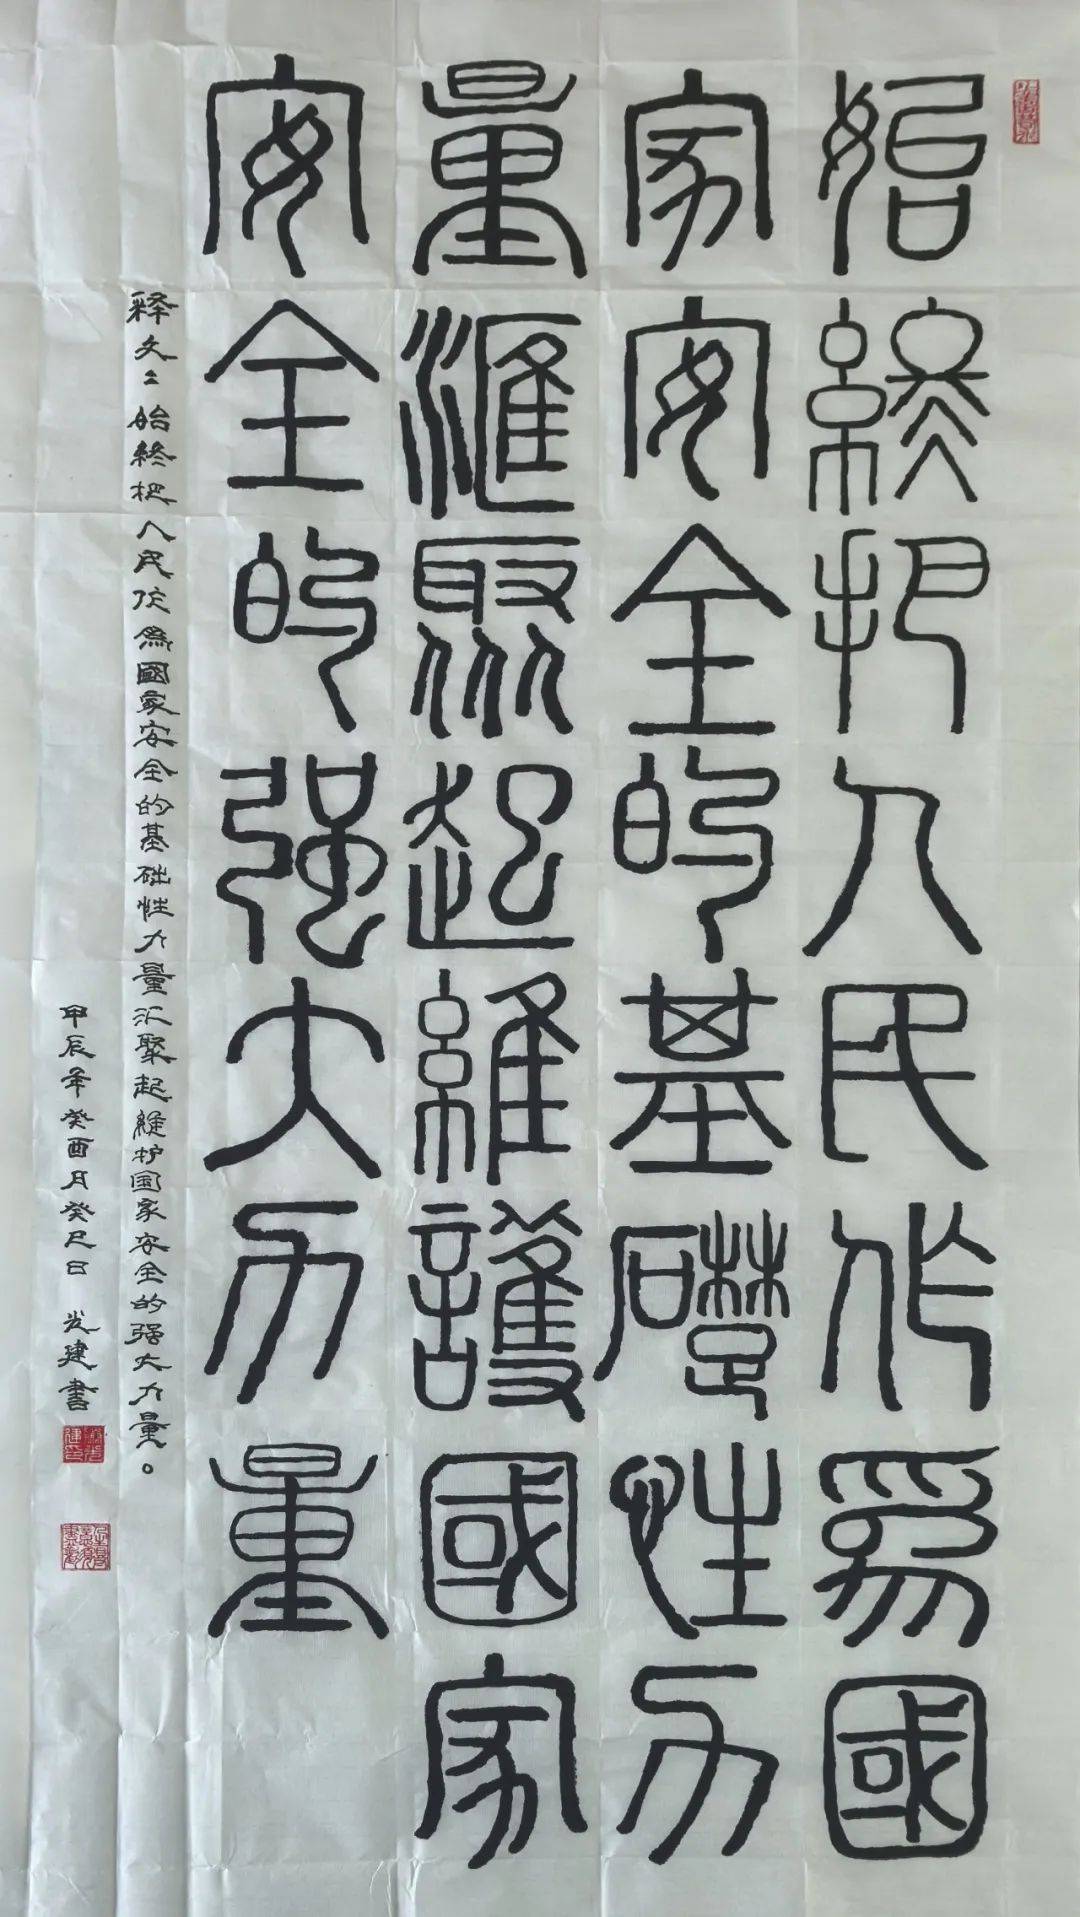 始終把人民作為國
家安全的基礎性力
量匯聚起維護國家
安全的强大力量
释文：始終把人民作為國家安全的基础性力量汇聚起維护国家安全的强大力量。
甲辰年癸酉月癸巳日 发建書